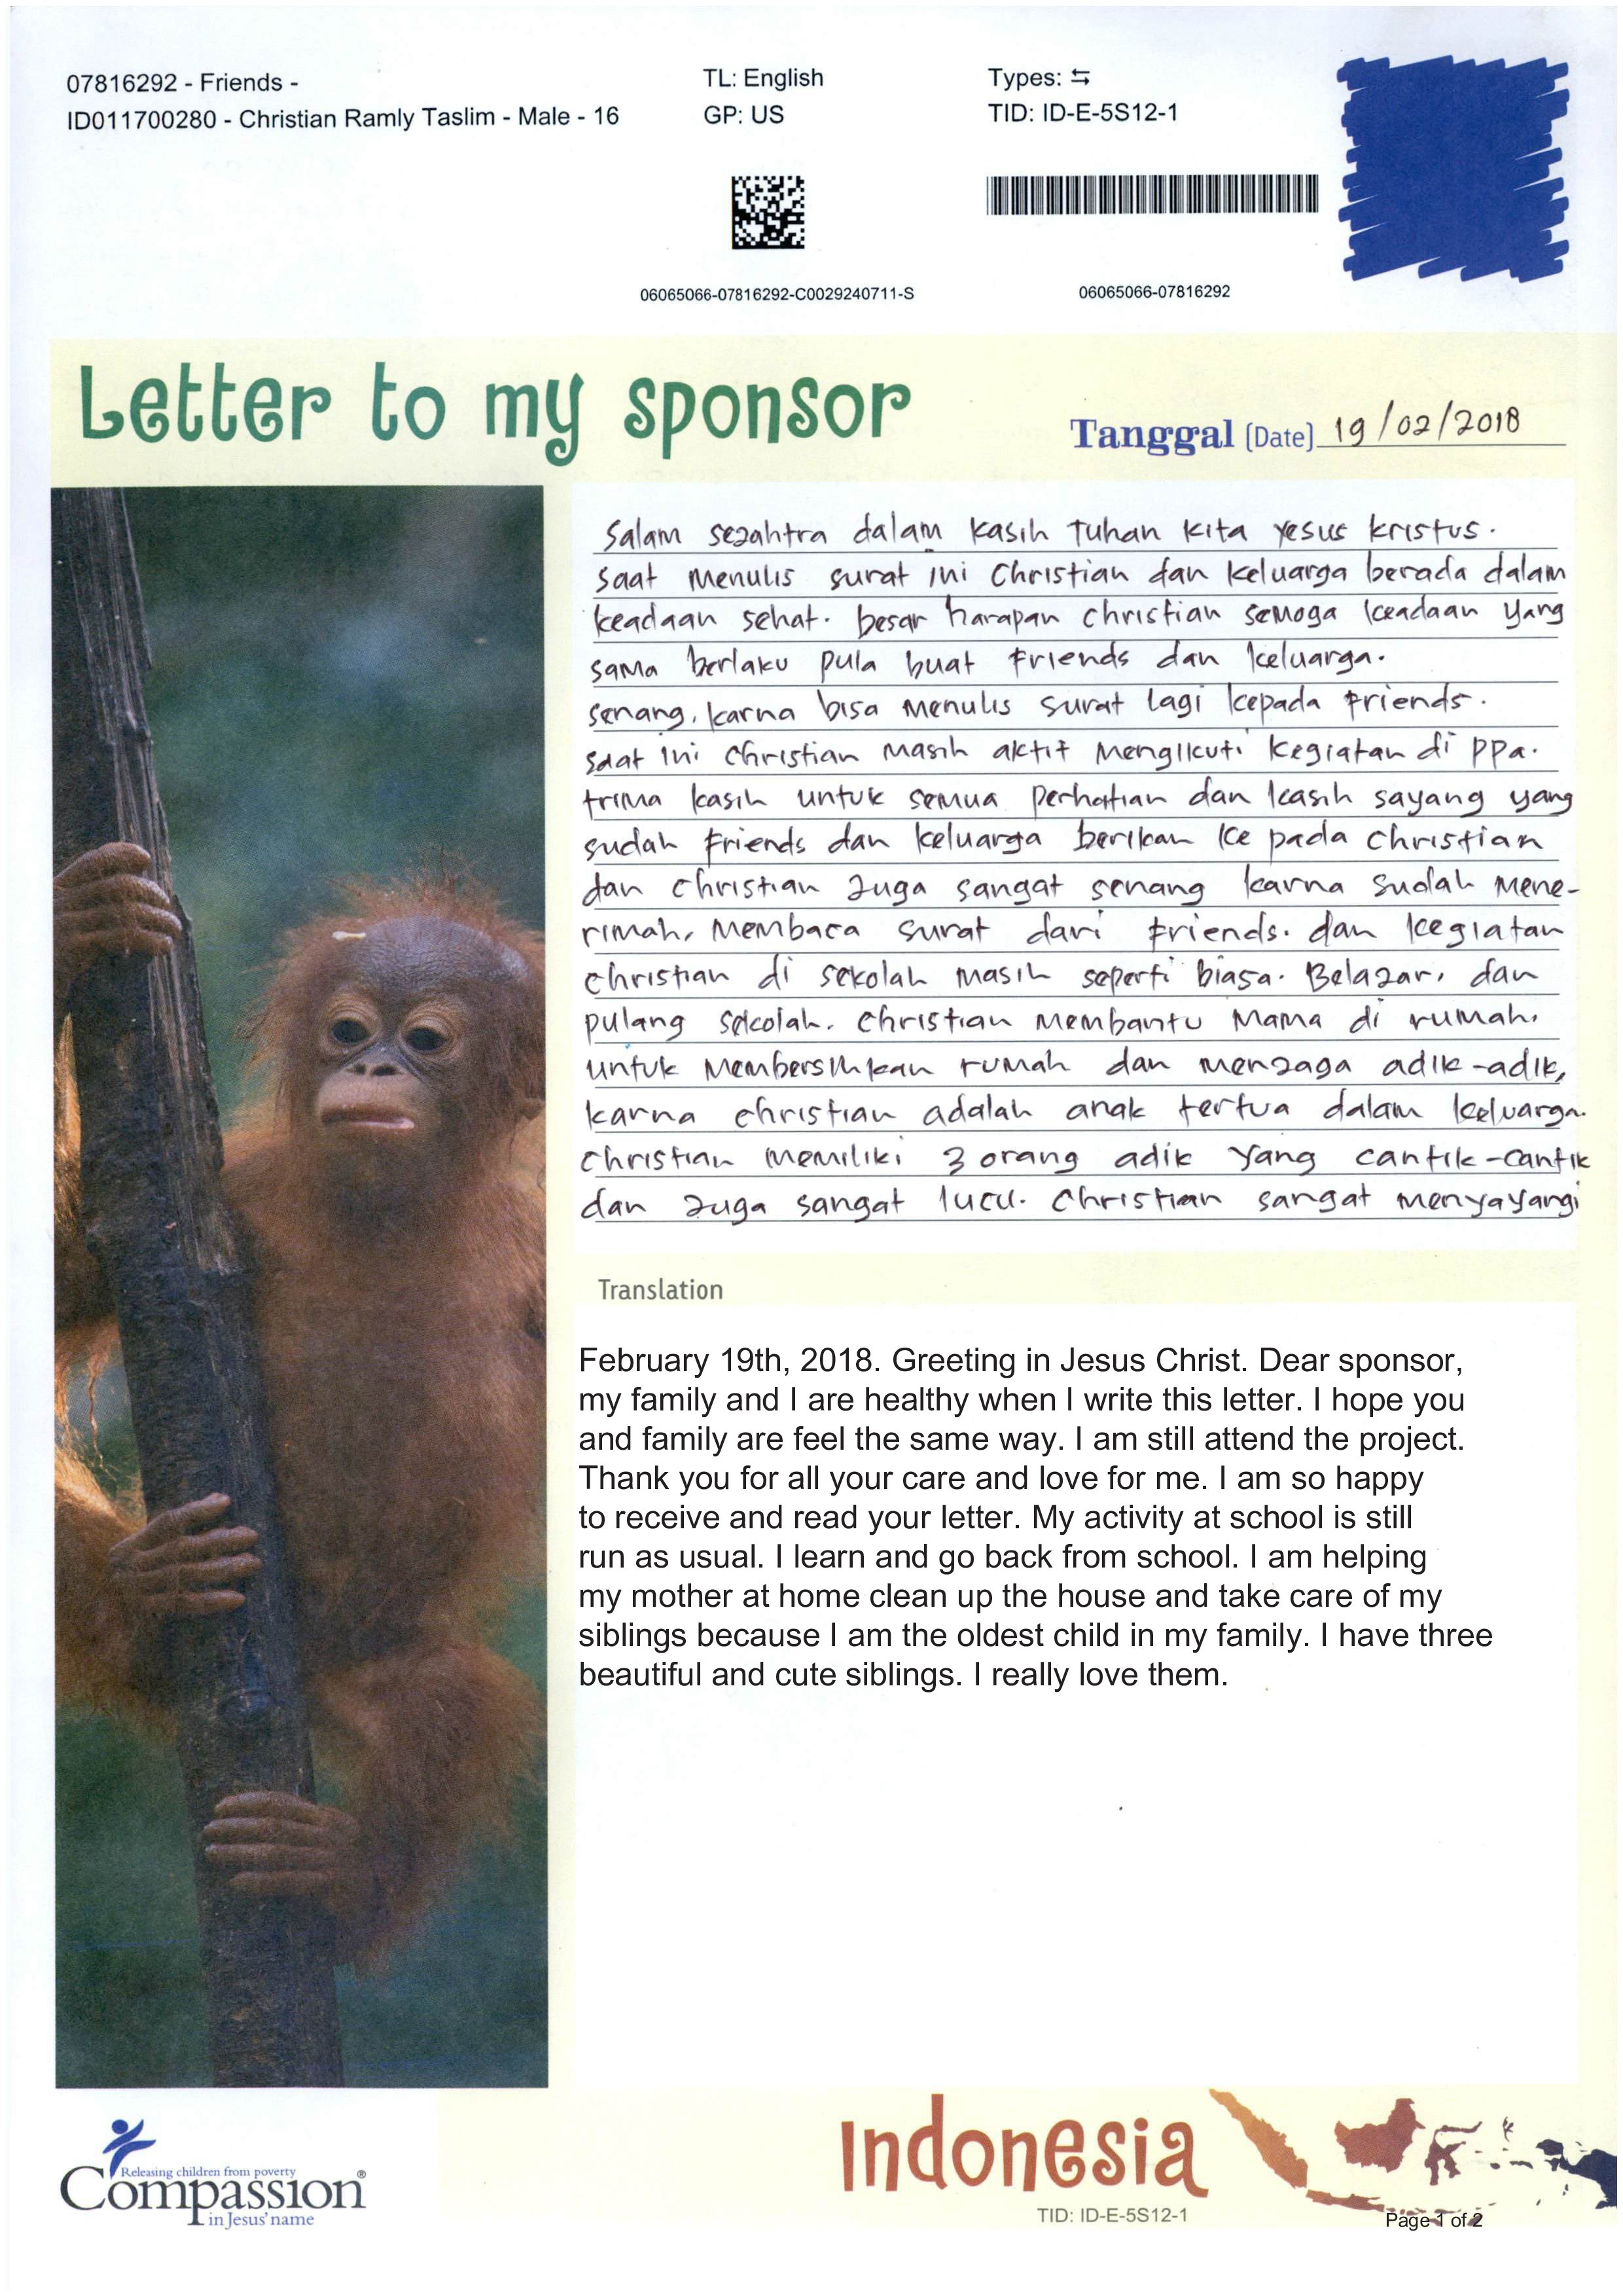 07816292 - Friends -
ID011700280 - Christian Ramly Taslim - Male - 16
TL: English
GP: US
Types: ⇆
TID: ID-E-5S12-1
06065066-07816292-C0029240711-S
06065066-07816292
Letter to my sponsor
Tanggal (Date) 19/02/2018
Salam sezahtra dalam kasih Tuhan kita yesus kristus.
saat menulis surat ini Christian dan keluarga berada dalam
keadaan sehat. besar harapan christian semoga keadaan yang
sama berlaku pula buat Friends dan keluarga.
senang, karna bisa menulis surat lagi kepada Friends.
saat ini christian masih aktif mengikuti kegiatan di ppa.
trima kasih untuk semua perhatian dan kasih sayang yang
sudah Friends dan keluarga berikan ke pada christian
dan christian zuga sangat senang karna sudah mene-
rimah, membaca surat dari Friends. dan kegiatan
christian di sekolah masih seperti biasa. Belazar, dan
pulang sekolah. christian membantu mama di rumah,
untuk membersihkan rumah dan menzaga adik-adik,
karna christian adalah anak tertua dalam keluarga.
christian memiliki 3 orang adik yang cantik-cantik
dan zuga sangat lucu. christian sangat menyayangi
Translation
February 19th, 2018. Greeting in Jesus Christ. Dear sponsor,
my family and I are healthy when I write this letter. I hope you
and family are feel the same way. I am still attend the project.
Thank you for all your care and love for me. I am so happy
to receive and read your letter. My activity at school is still
run as usual. I learn and go back from school. I am helping
my mother at home clean up the house and take care of my
siblings because I am the oldest child in my family. I have three
beautiful and cute siblings. I really love them.
Releasing children from poverty
Compassion®
in Jesus' name
Indonesia
TID: ID-E-5S12-1
Page 1 of 2